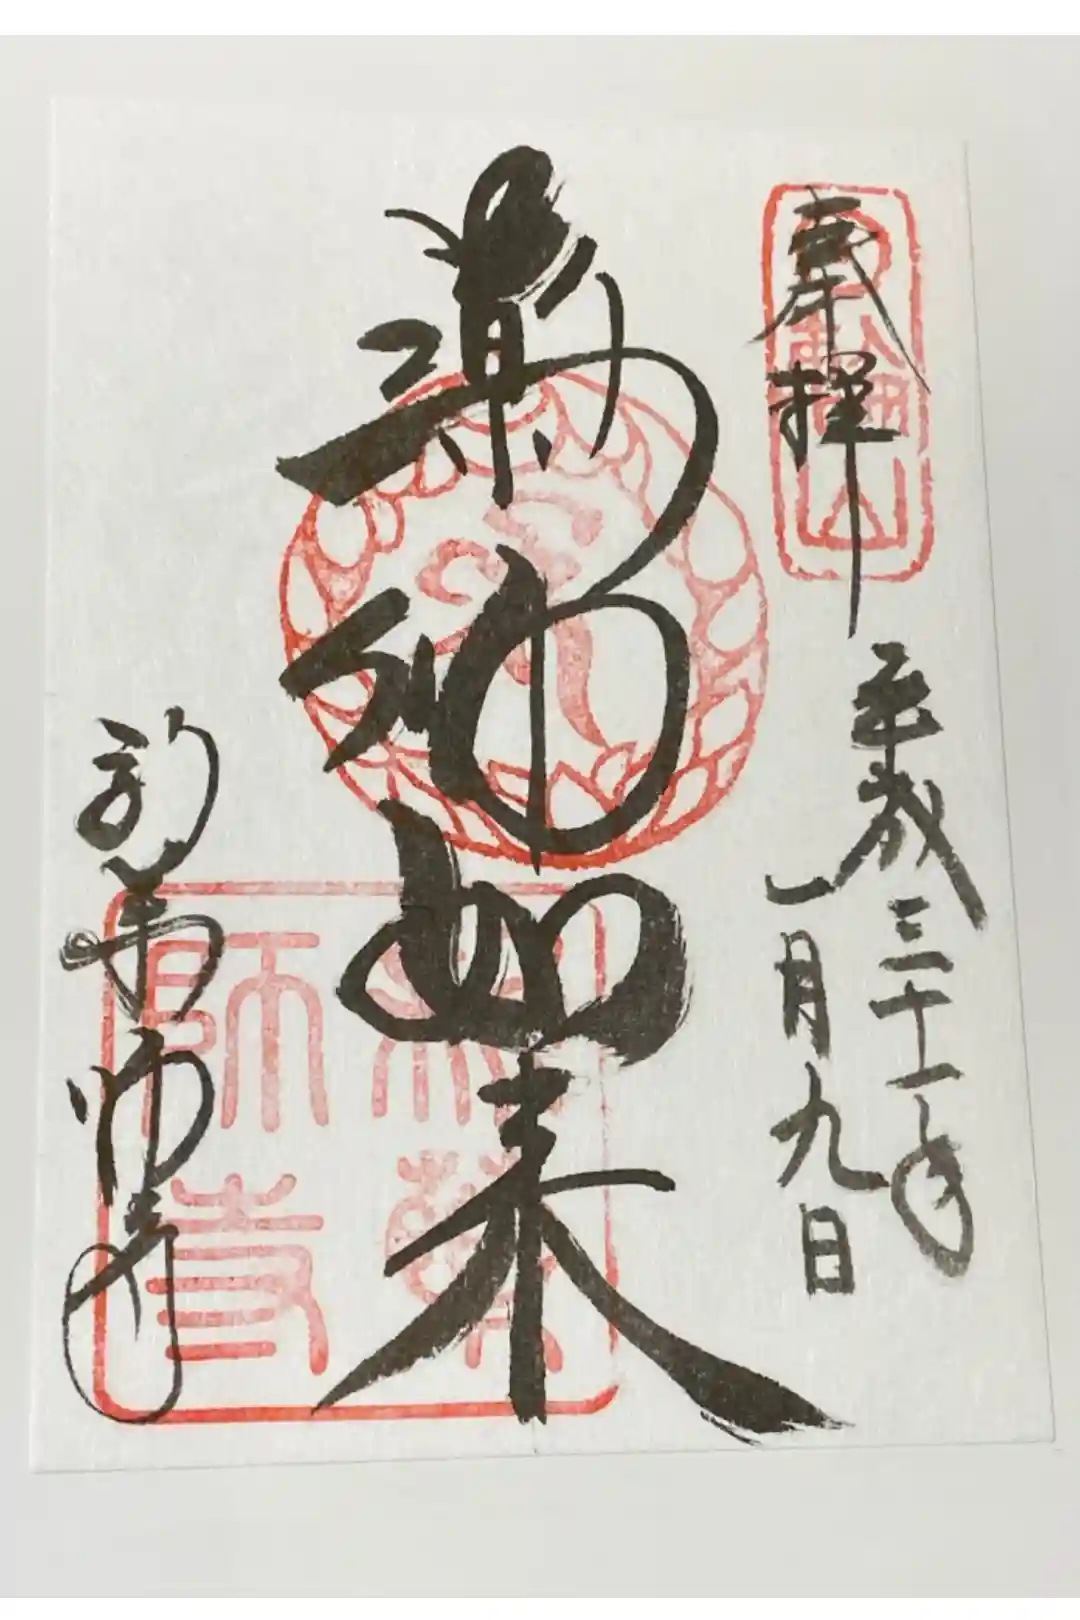 奉拝
日輪山
平成三十一年
一月九日
薬師如来
新薬師寺
新薬師寺